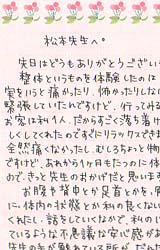 松本先生へ。
先日はどうもありがとうござい
整体というものを体験したのは
実を言うと痛かったり、怖かったりしない
緊張していたんですけど、行ってみる
お客は私1人、だからすごく落ち着け
しくしてくれたのでずいぶんリラックスでき
全然痛くなかったし、むしろちょっと物
ですけど、あれから1ヶ月もたつのに体の
ので、きっと先生のおかげだと思いま
お腹や背中とか足首とかを、
に、体内の状態とか私の良くない
くれたし、話をしていくなかで、私の
ているような不思議な安心感が
先生の手が触れている所が、だ